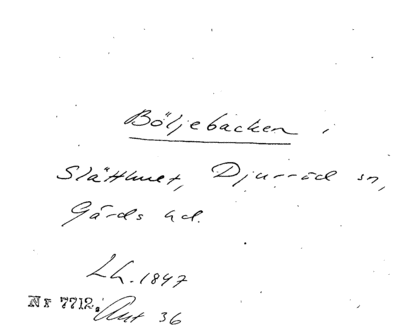 Böljebacken i
Slätthult, Djurröd sn,
Gärds hd.
Lh. 1847
Nr 7712. Ant 36